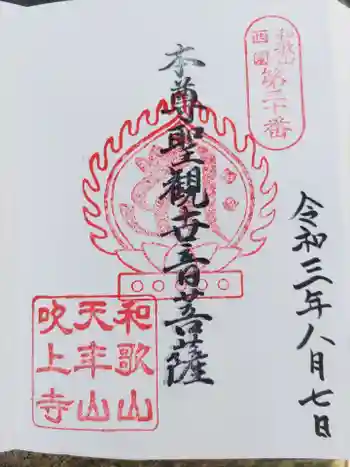 和歌山
西国
第三十番
令和三年八月七日
本尊聖観世音菩薩
和歌山
天年山
吹上寺